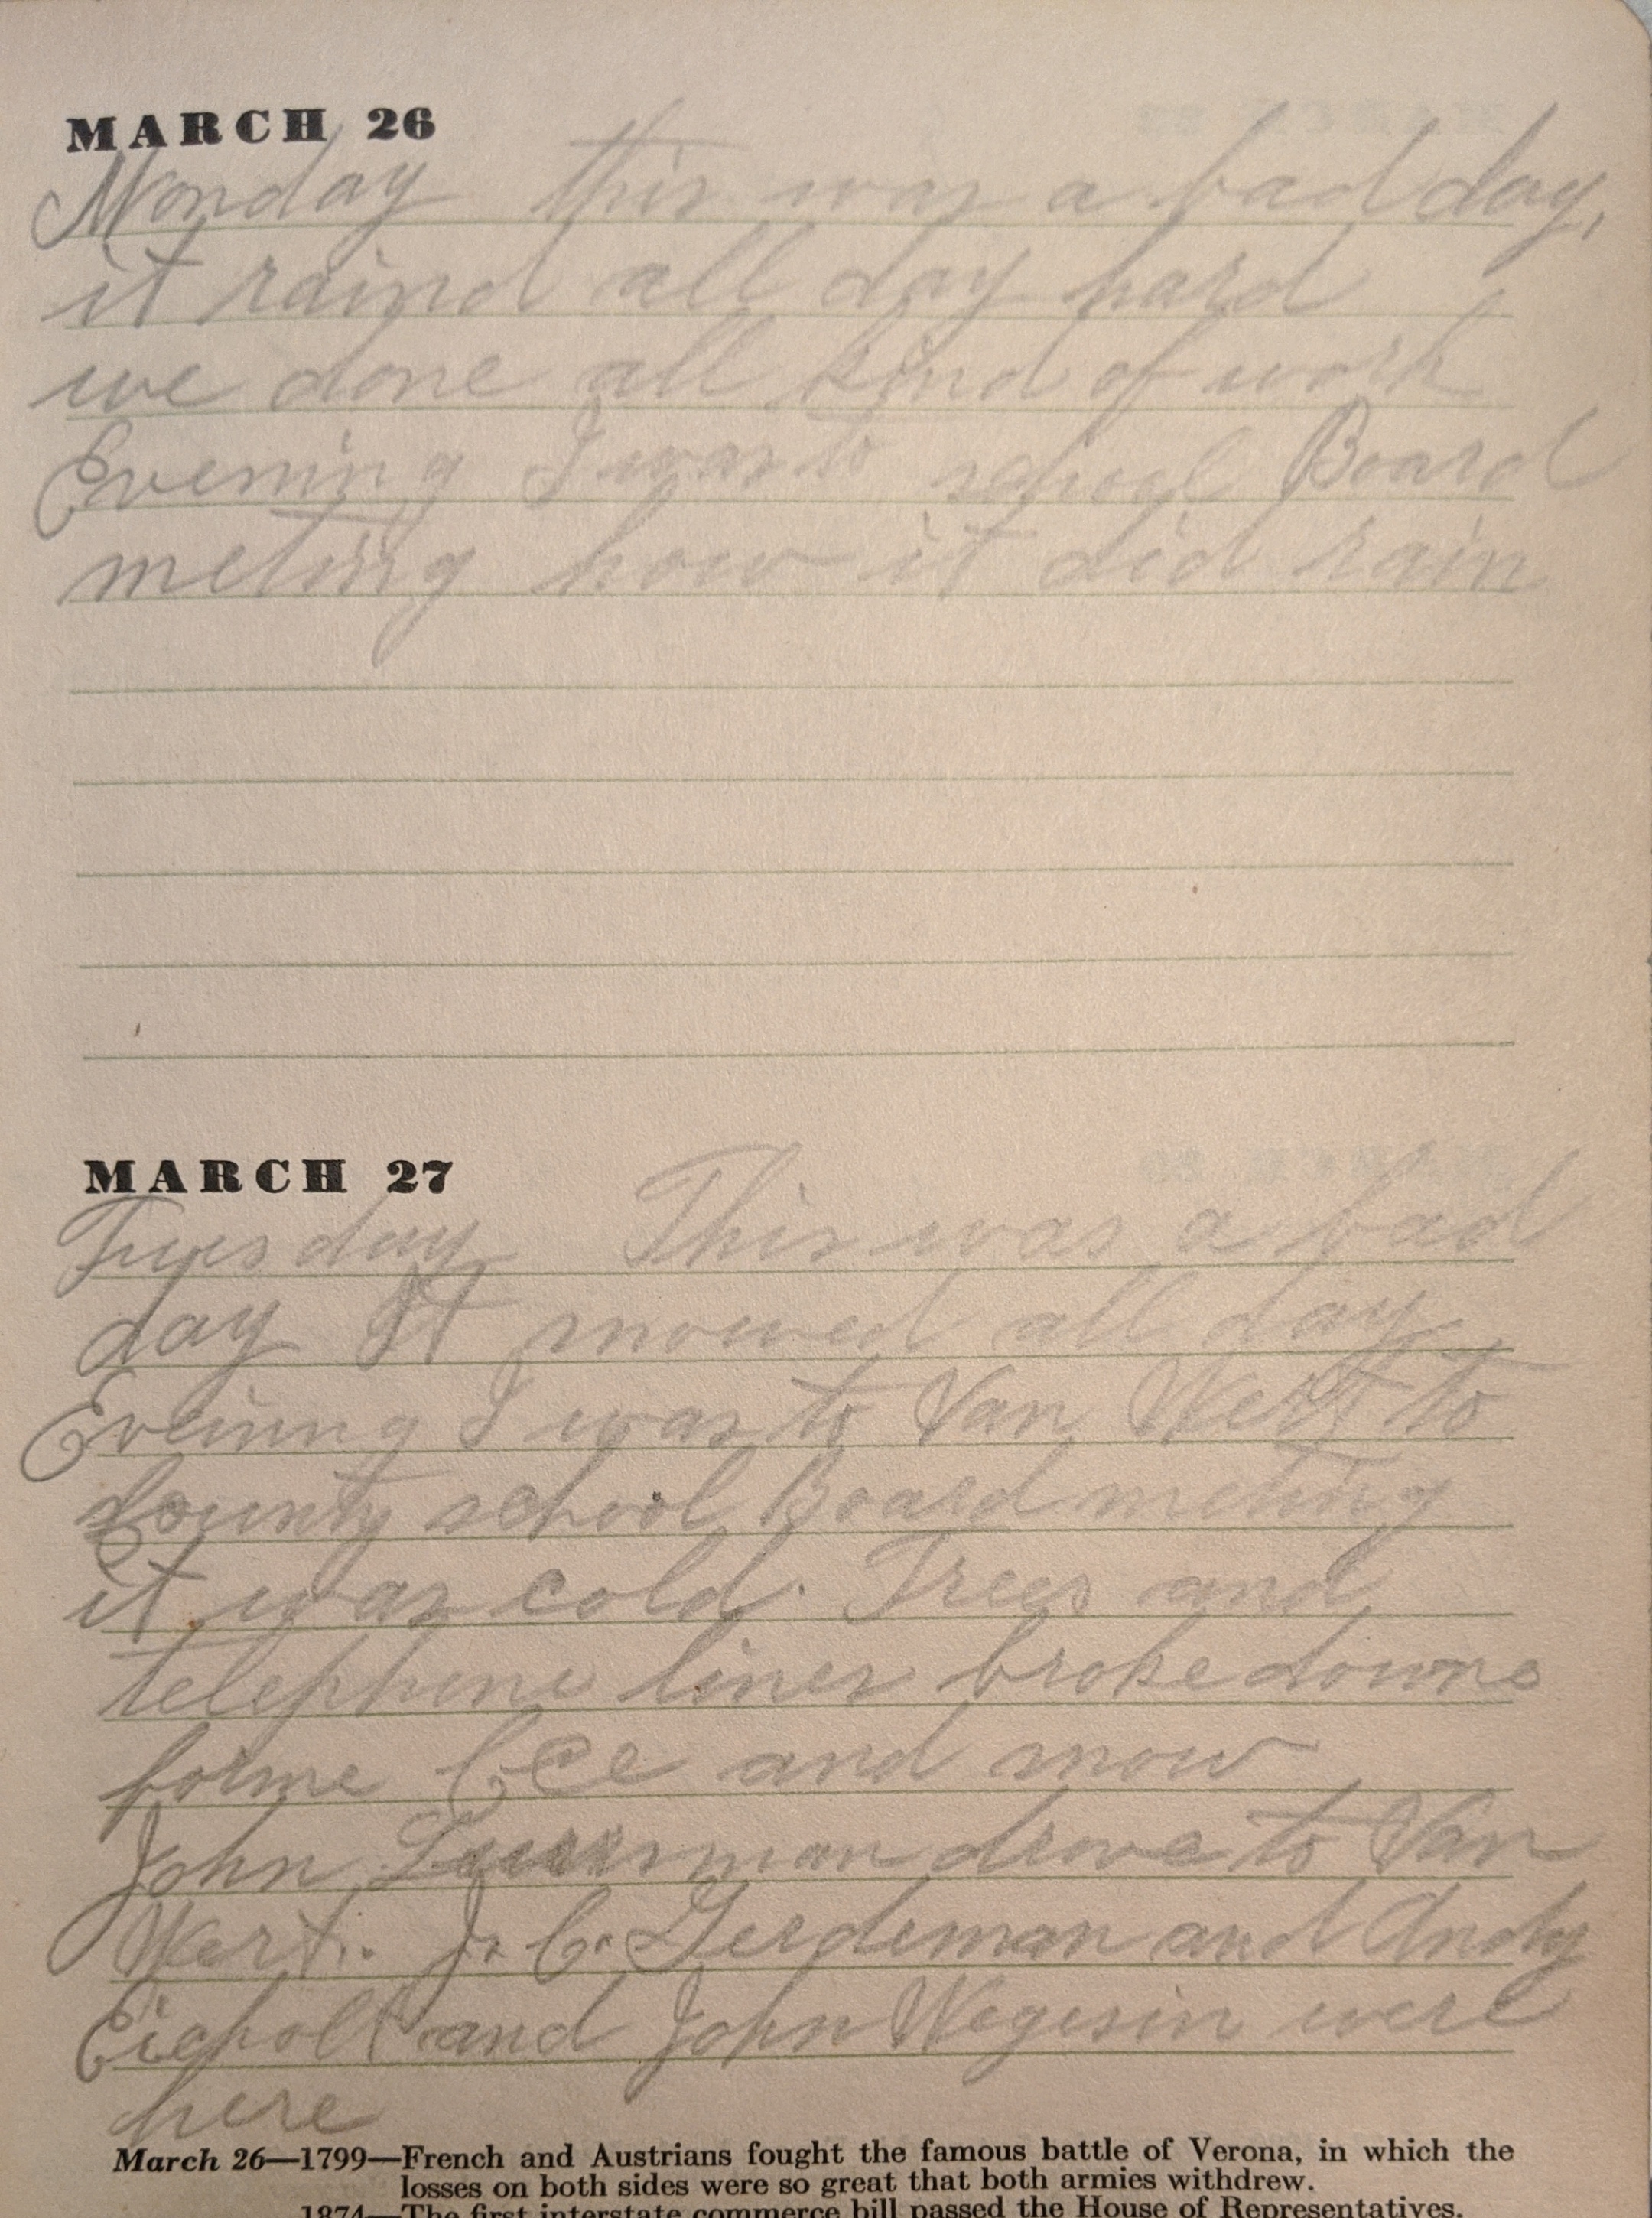 MARCH 26
Monday this was a bad day,
it raind all day hard
we done all kind of work
Evening I was to school Board
meting how it did rain
MARCH 27
Tuesday This was a bad
day It snowed all day
Evening I was to Van Wert to
County school Board meting
it was cold. Trees and
telephone lines broke downe
Ice and snow
John drove to Van
Wert.. J. C. Gerdeman and Andy
and John Wegesin were
here
March 26—1799—French and Austrians fought the famous battle of Verona, in which the
losses on both sides were so great that both armies withdrew.
1874—The first interstate commerce bill passed the House of Representatives.